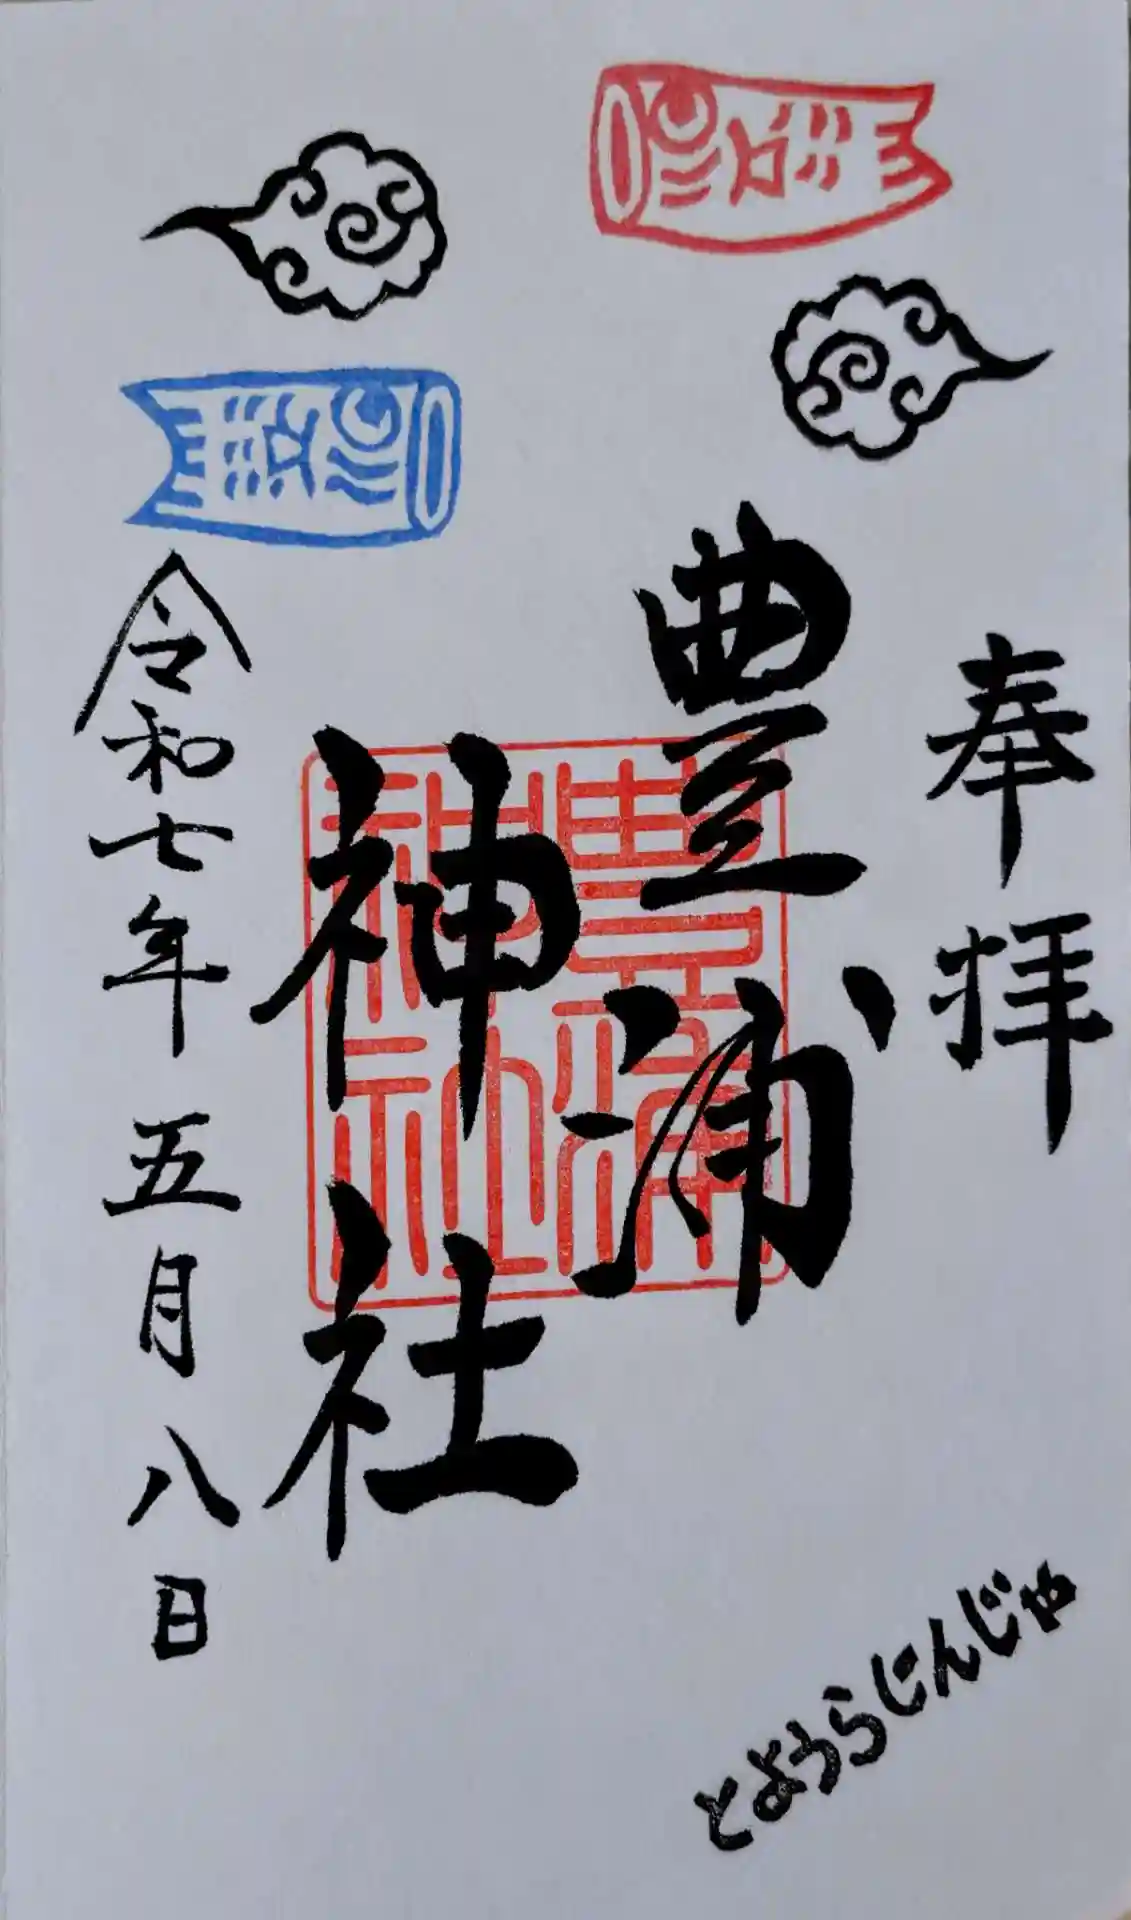 奉拝
豊浦
神社
豊浦
神社
令和七年 五月八日
とようらじんじゃ